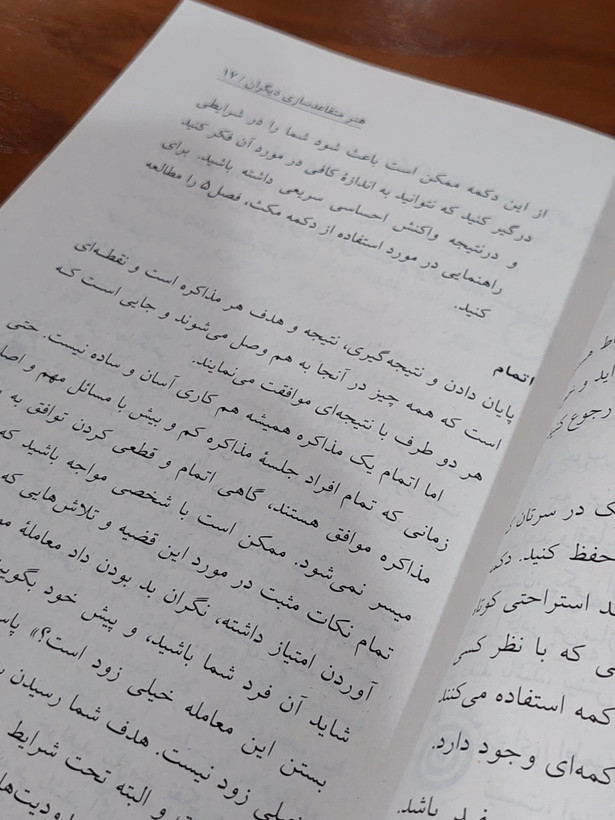 هنر متقاعدسازی دیگران / ۱۷
از این دکمه ممکن است باعث شود شما را در شرایطی
درگیر کنید که نتوانید به اندازهٔ کافی در مورد آن فکر کنید
و درنتیجه واکنش احساسی سریعی داشته باشید. برای
راهنمایی در مورد استفاده از دکمه مکث، فصل ۵ را مطالعه
کنید.
اتمام
پایان دادن و نتیجه‌گیری، نتیجه و هدف هر مذاکره است و نقطه‌ای
است که همه چیز در آنجا به هم وصل می‌شوند و جایی است که
هر دو طرف با نتیجه‌ای موافقت می‌نمایند.
اما اتمام یک مذاکره همیشه هم کاری آسان و ساده نیست. حتی
زمانی که تمام افراد جلسهٔ مذاکره کم و بیش با مسائل مهم و
مذاکره موافق هستند، گاهی اتمام و قطعی کردن توافق به
میسر نمی‌شود. ممکن است با شخصی مواجه باشید که
تمام نکات مثبت در مورد این قضیه و تلاش‌هایی که
آوردن امتیاز داشته، نگران بد بودن داد معاملهٔ
شاید آن فرد شما باشید، و پیش خود
بستن این معامله خیلی زود است؟»
خیلی زود نیست. هدف شما رسیدن
و البته تحت شرایط
رجوع
ک در سرتان
حفظ کنید.
استراحتی
ی که با نظر
کمه استفاده می‌کنند
کمه‌ای وجود دارد.
باشد.